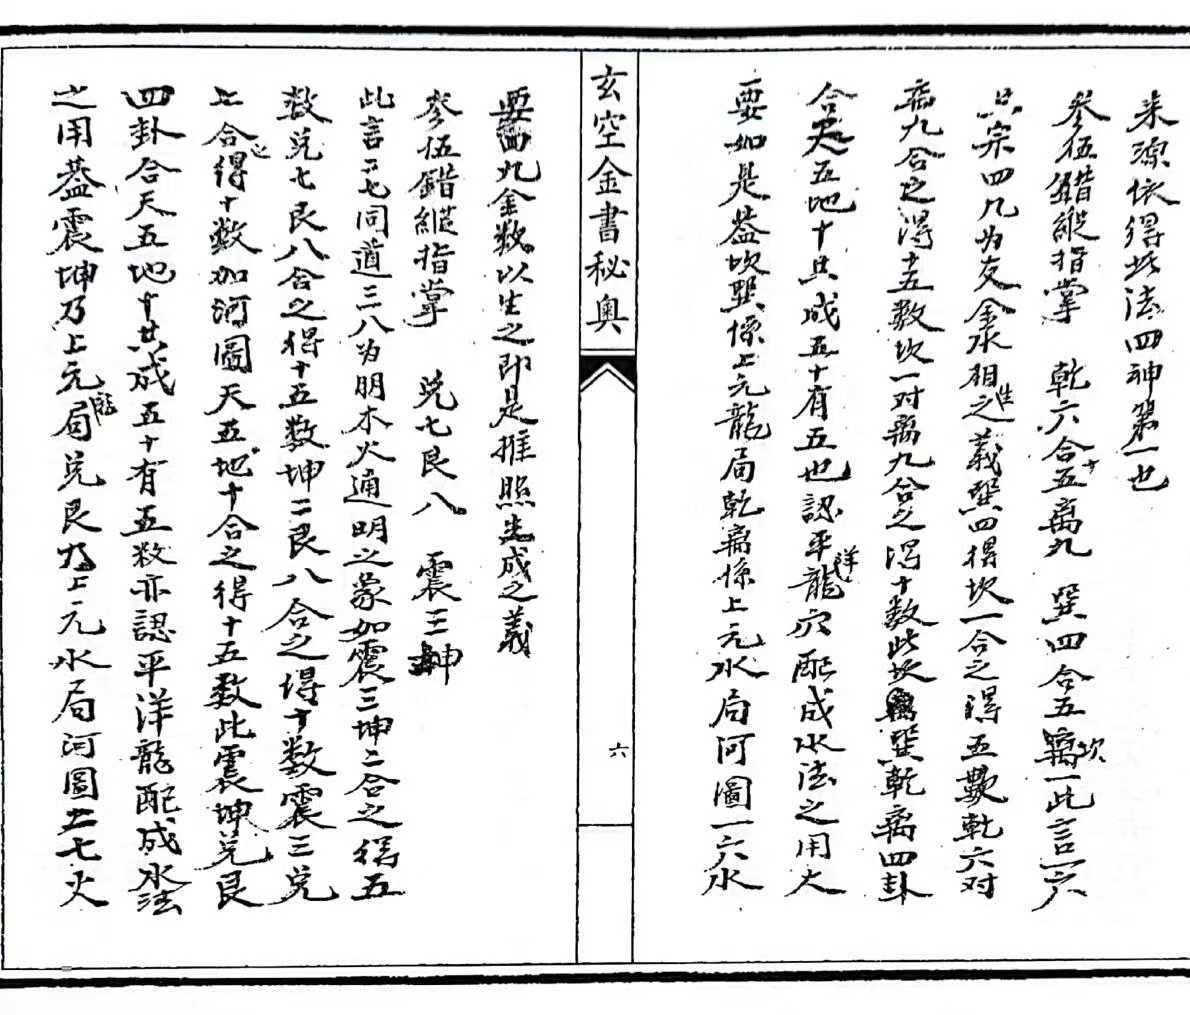 来源依得此法四神第一也
參伍錯縱指掌　乾六合五十离九　巽四合五坎一此言一六
共宗四九为友金水相生之義巽四得坎一合之得五數乾六对
离九合之得十五數坎一对离九合之得十數此坎巽乾离四卦
合天五地十共成五十有五也認平洋龍穴配成水法之用大
要如是葢坎巽係上元龍局乾离係上元水局河圖一六水
玄空金書秘奥
六
要四九金数以生之即是推照生成之義
參伍錯縱指掌　兑七艮八　震三坤
此言二七同道三八为朋木火通明之蒙如震三坤二合之得五
数兑七艮八合之得十五数坤二艮八合之得十数震三兑
七合得十數如河圖天五地十合之得十五数此震坤兑艮
四卦合天五地十共成五十有五数亦認平洋龍配成水法
之用葢震坤乃上元龍局兑艮乃上元水局河圖二七火